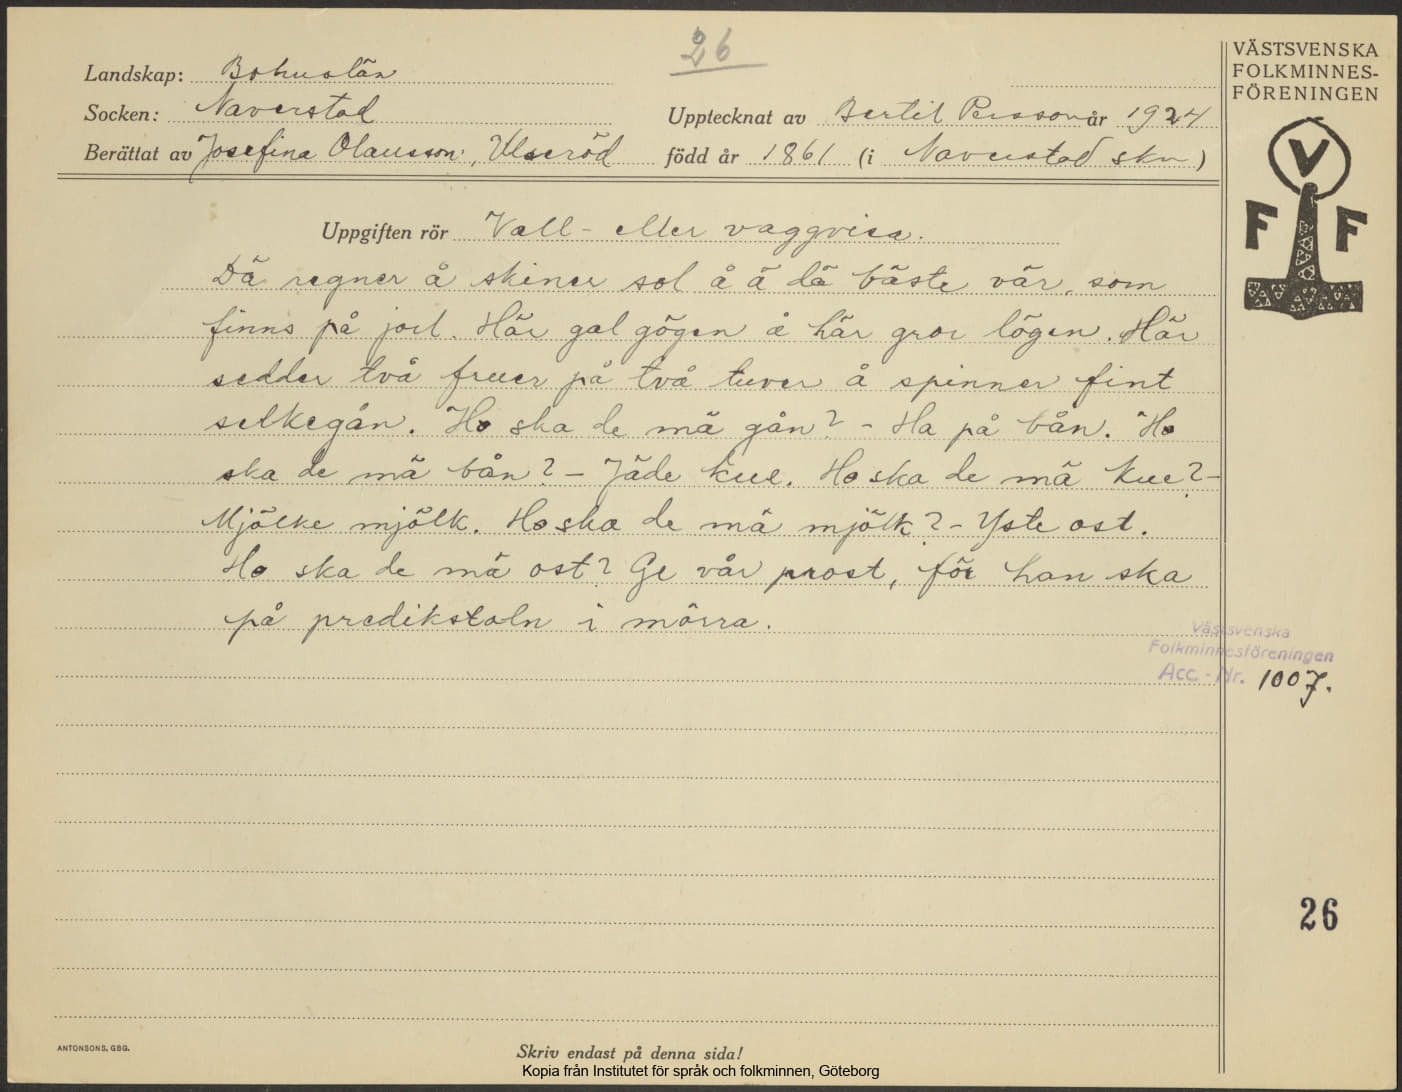 26
Landskap: Bohuslän
Socken: Naverstad
Upptecknat av Bertil Persson år 1924
Berättat av Josefina Olausson, Ulseröd född år 1861 (i Naverstad skn)
Uppgiften rör Vall- eller vaggvisa.
Dä regner å skiner sol å ä dä bäste vär, som
finns på jorl. Här gal gögen å här gror lögen. Här
sedder två fruer på två tuver å spinner fint
selkegån. Ho ska de mä gån? - Ha på bån. Ho
ska de mä bån? - Jäde kue. Ho ska de mä kue? -
Mjölke mjölk. Ho ska de mä mjölk? - Yste ost.
Ho ska de mä ost? Ge vår prost, för han ska
på predikstoln i mörra.
VÄSTSVENSKA
FOLKMINNES-
FÖRENINGEN
V
F F
Västsvenska
Folkminnesföreningen
Acc. - Nr. 1007.
26
ANTONSONS, GBG.
Skriv endast på denna sida!
Kopia från Institutet för språk och folkminnen, Göteborg